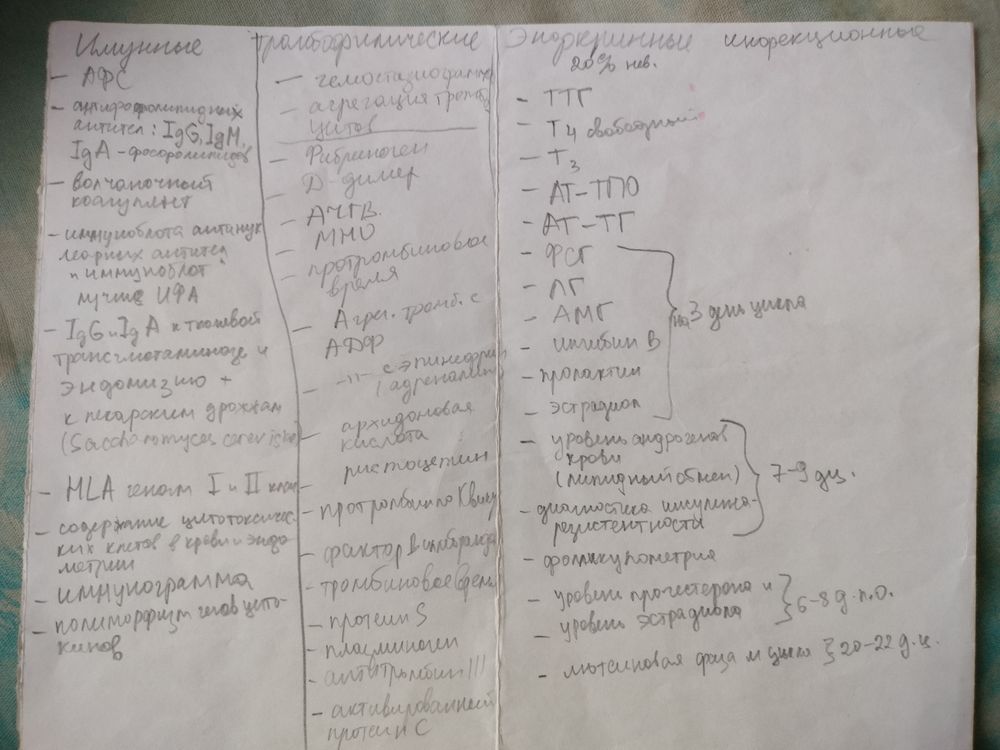 Имунные
- АФС
- антифосфолипидных
антител: IgG, IgM,
IgA - фосфолипидов
- волчаночный
коагулянт
- иммуноблота антинук
леарных антител
"иммуноблот"
лучше ИФА
- IgG и IgA к тканевой
трансглютаминазе и
эндомизию +
к пекарским дрожжам
(Saccharomyces cerevisiae)
- HLA генам I и II клас
- содержание цитотоксичес-
ких клеток в крови и эндо
метрии
- иммунограмма
- полиморфизм генов цито-
кинов
тромбофилические
- гемостазиограмма
- агрегация тромбо
цитов
- Фибриноген
- Д-димер
- АЧТВ
МНО
- протромбиновое
время
- Агрег. тромб. с
АДФ
- -"- с эпинефрин
(адреналин)
- арахидоновая
кислота
ристоцетин
- протромбин по Квику
- фактор Виллебранда
- тромбиновое время
- протеин S
- плазминоген
- антитромбин III
- активированный
протеин С
Эндокринные
20% нев.
- ТТГ
- Т4 свободный
- Т3
- АТ-ТПО
- АТ-ТГ
- ФСГ
- ЛГ
- АМГ
- ингибин В
- пролактин
- эстрадиол
на 3 день цикла
- уровень андрогенов
крови
(липидный обмен)
- диагностика инсулино-
резистентности
7-9 дц.
- фолликулометрия
- уровень прогестерона и
уровень эстрадиола
6-8 д.п.о.
- лютеиновая фаза м цикла } 20-22 д.ц.
инфекционные